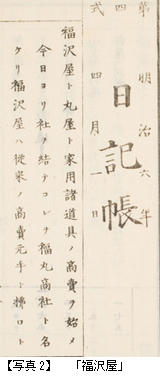 第 明治六年
四 日記帳
弍 四月一日
福沢屋ト丸屋ト家用諸道具ノ商賣ヲ始メ
今日ヨリ社ヲ結テコレヲ福丸商社ト名
ケリ福沢屋ハ從来ノ商賣元手ト拂口ト
【写真2】 「福沢屋」